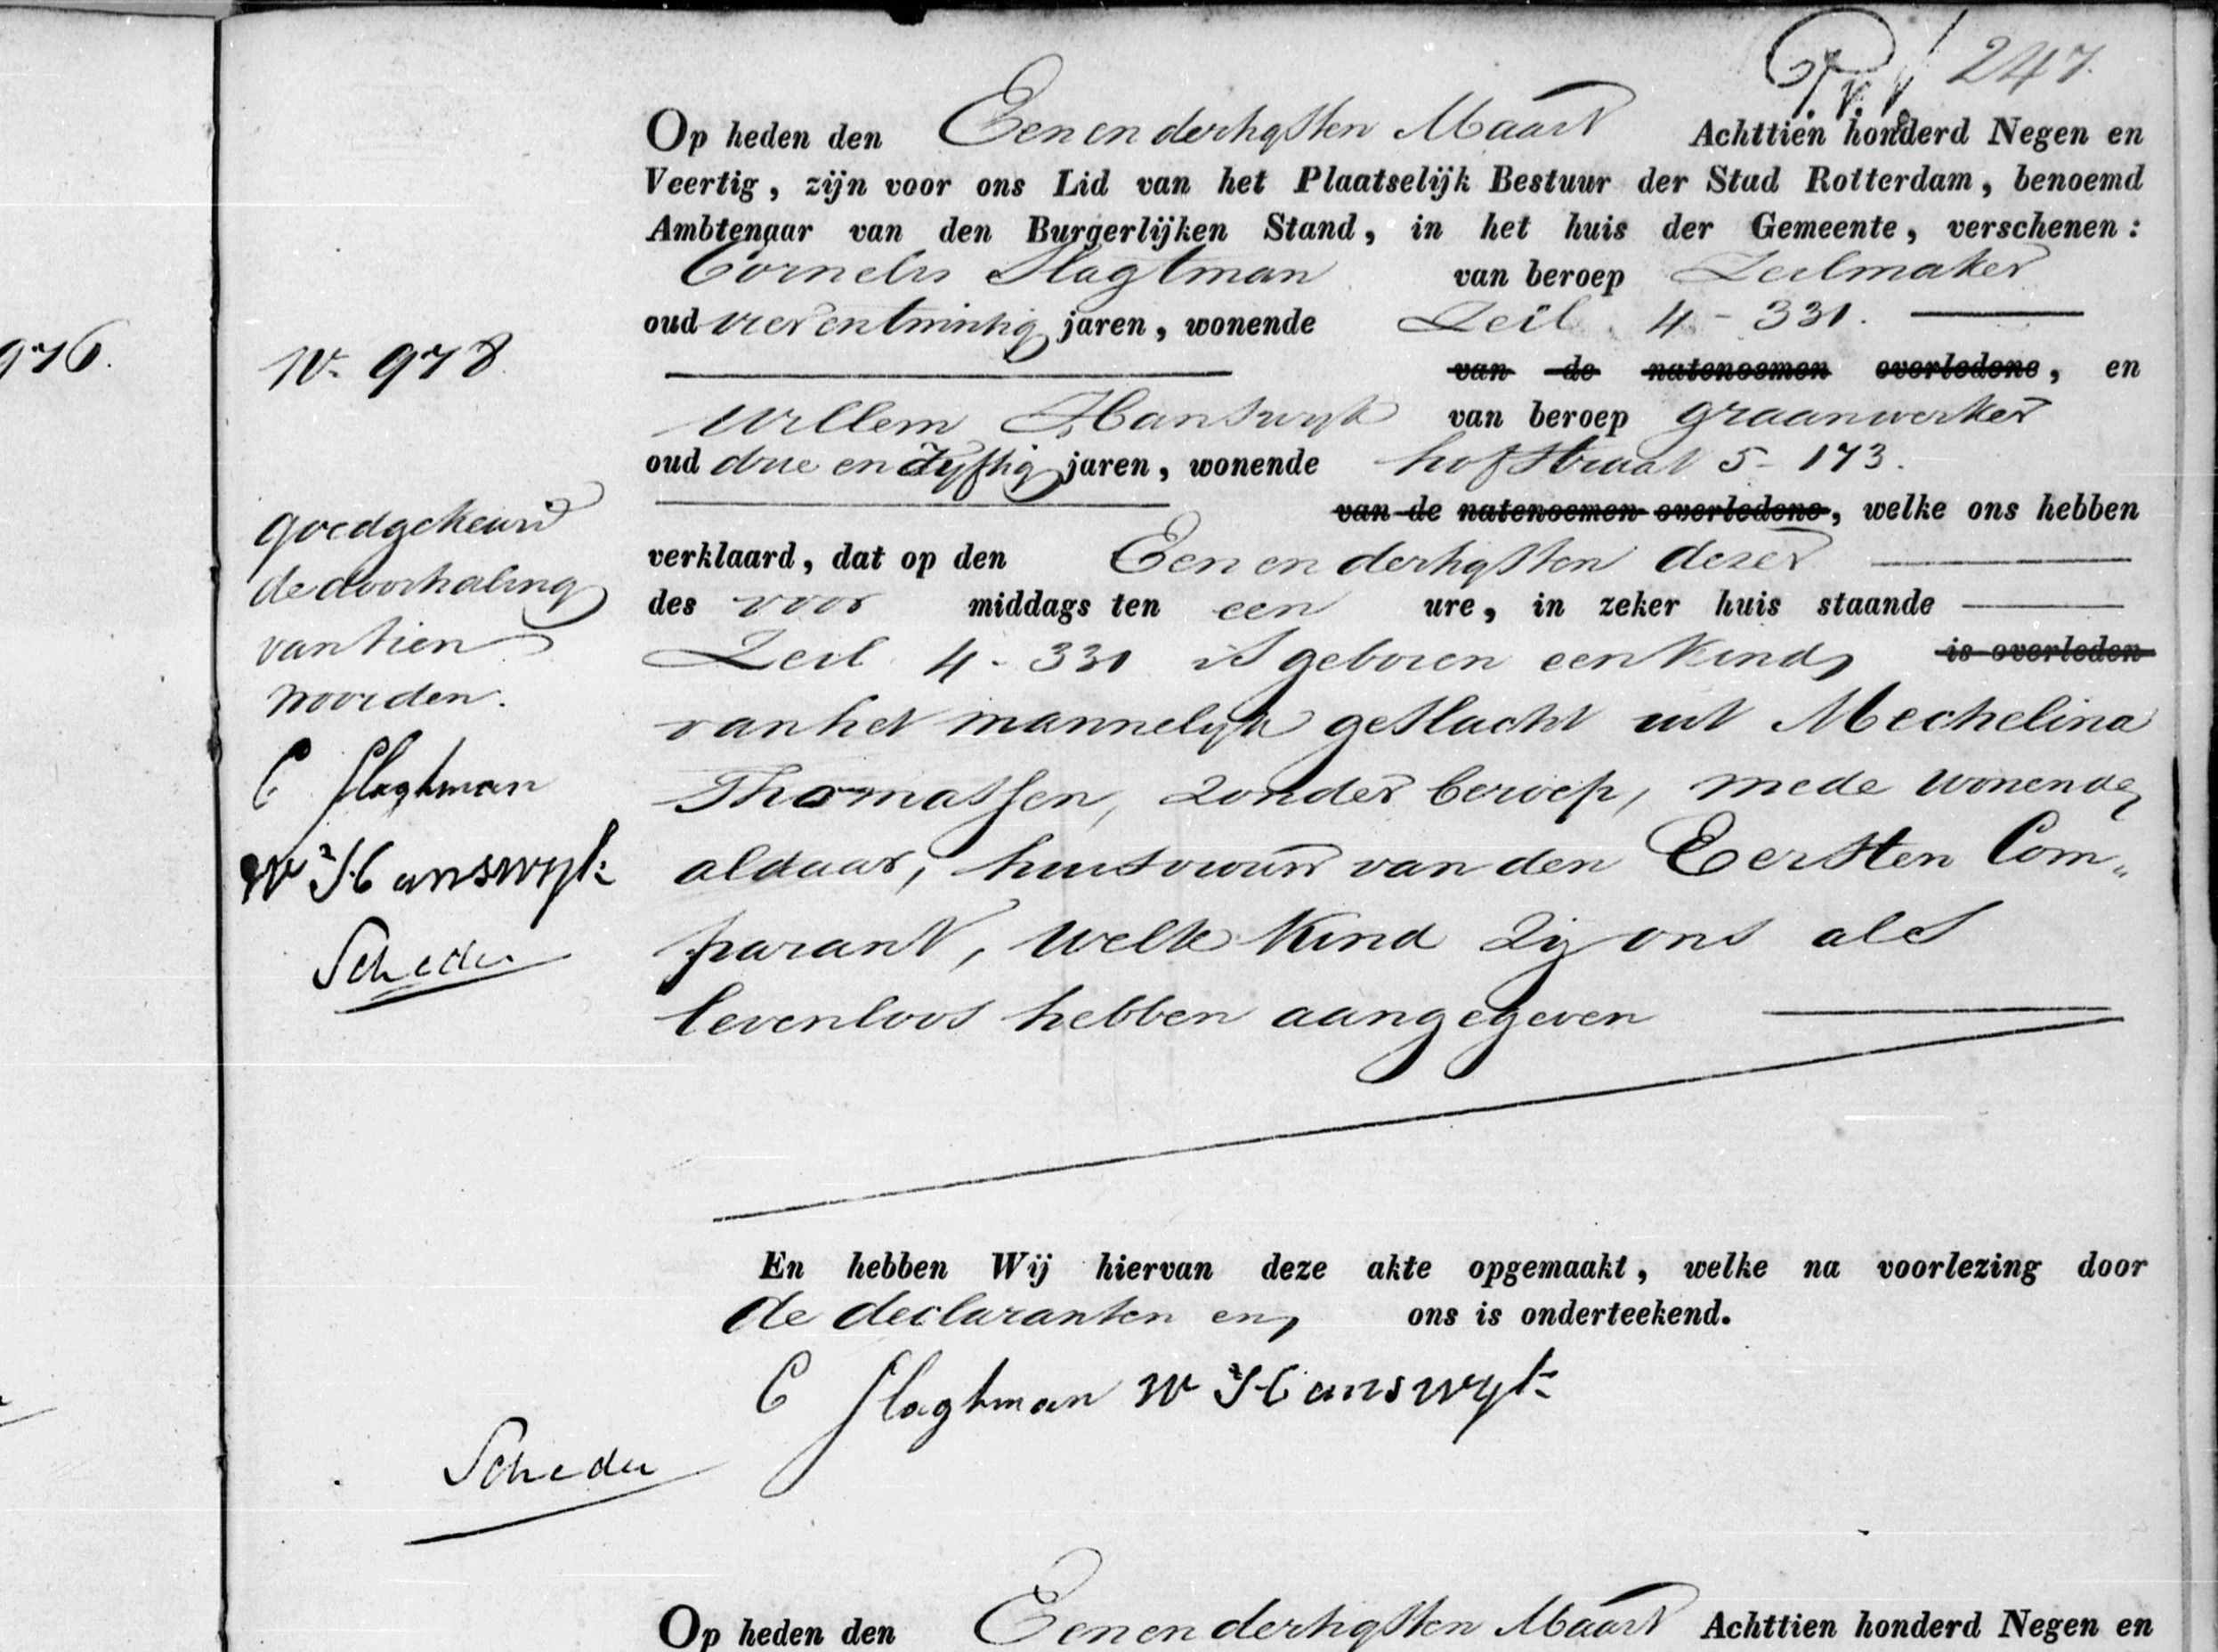 247.
Op heden den Een en dertigsten Maart Achttien honderd Negen en
Veertig, zijn voor ons Lid van het Plaatselijk Bestuur der Stad Rotterdam, benoemd
Ambtenaar van den Burgerlijken Stand, in het huis der Gemeente, verschenen:
Cornelis Slagtman van beroep Zeilmaker
oud vier en twintig jaren, wonende Zeil 4 - 331.
van de natenoemen overledene, en
Willem Hanswyk van beroep graanwerker
oud drie en vyftig jaren, wonende hofstraat 5 - 173.
van de natenoemen overledene, welke ons hebben
verklaard, dat op den Een en dertigsten dezer
des voor middags ten een ure, in zeker huis staande
Zeil 4 - 331 is geboren een kind is overleden
van het mannelyk geslacht uit Mechelina
Thomassen, zonder beroep, mede wonende
aldaar, huisvrouw van den Eersten Com„
parant, welk kind zij ons als
levenloos hebben aangegeven
En hebben Wij hiervan deze akte opgemaakt, welke na voorlezing door
de declaranten en ons is onderteekend.
C Slagtman W Hanswyk
Scheder
976.
No 978
goedgekeurd
de doorhaling
van tien
woorden.
C Slagtman
W Hanswyk
Scheder
Op heden den Een en dertigsten Maart Achttien honderd Negen en